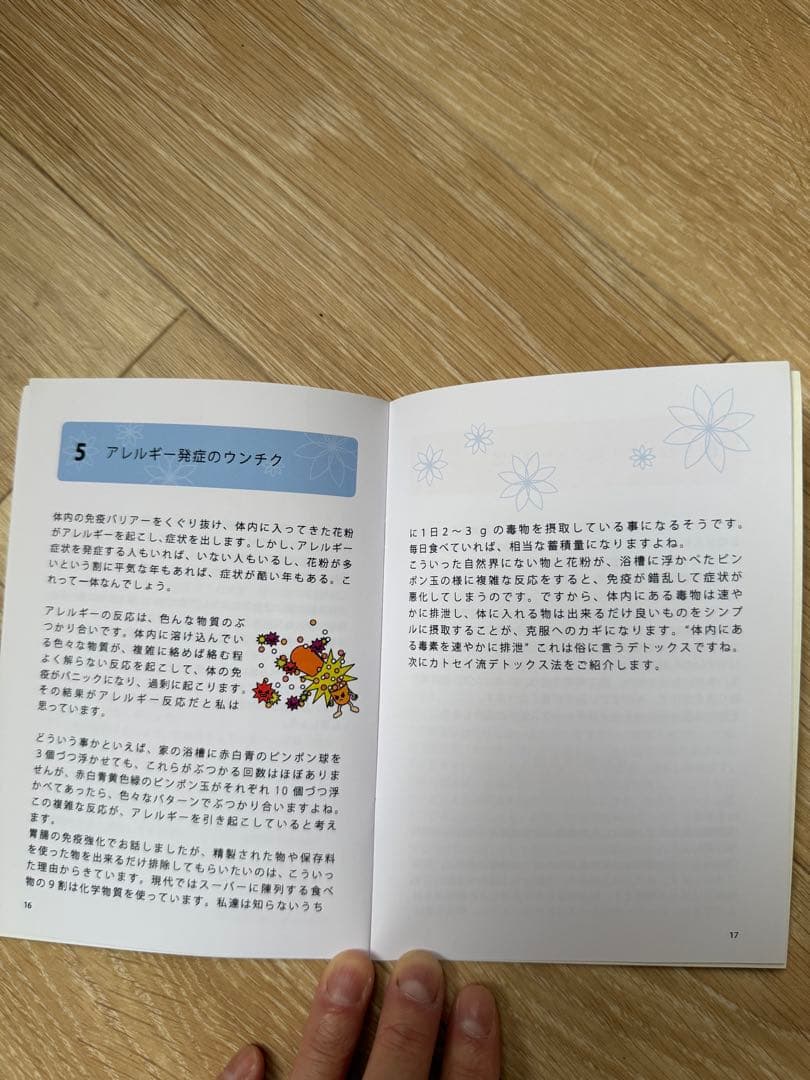 5 アレルギー発症のウンチク
体内の免疫バリアーをくぐり抜け、体内に入ってきた花粉
がアレルギーを起こし、症状を出します。しかし、アレルギー
症状を発症する人もいれば、いない人もいるし、花粉が多
いという割に平気な年もあれば、症状が酷い年もある。こ
れって一体なんでしょう。
アレルギーの反応は、色んな物質のぶ
つかり合いです。体内に溶け込んでい
る色々な物質が、複雑に絡めば絡む程
よく解らない反応を起こして、体の免
疫がパニックになり、過剰に起こります。
その結果がアレルギー反応だと私は
思っています。
どういう事かといえば、家の浴槽に赤白青のピンポン球を
3個づつ浮かせても、これらがぶつかる回数はほぼありま
せんが、赤白青黄色緑のピンポン玉がそれぞれ10個づつ浮
かべてあったら、色々なパターンでぶつかり合いますよね。
この複雑な反応が、アレルギーを引き起こしていると考え
ます。
胃腸の免疫強化でお話しましたが、精製された物や保存料
を使った物を出来るだけ排除してもらいたいのは、こういっ
た理由からきています。現代ではスーパーに陳列する食べ
物の9割は化学物質を使っています。私達は知らないうち
16
に1日2〜3gの毒物を摂取している事になるそうです。
毎日食べていれば、相当な蓄積量になりますよね。
こういった自然界にない物と花粉が、浴槽に浮かべたピン
ポン玉の様に複雑な反応をすると、免疫が錯乱して症状が
悪化してしまうのです。ですから、体内にある毒物は速や
かに排泄し、体に入れる物は出来るだけ良いものをシンプ
ルに摂取することが、克服へのカギになります。“体内にあ
る毒素を速やかに排泄” これは俗に言うデトックスですね。
次にカトセイ流デトックス法をご紹介します。
17